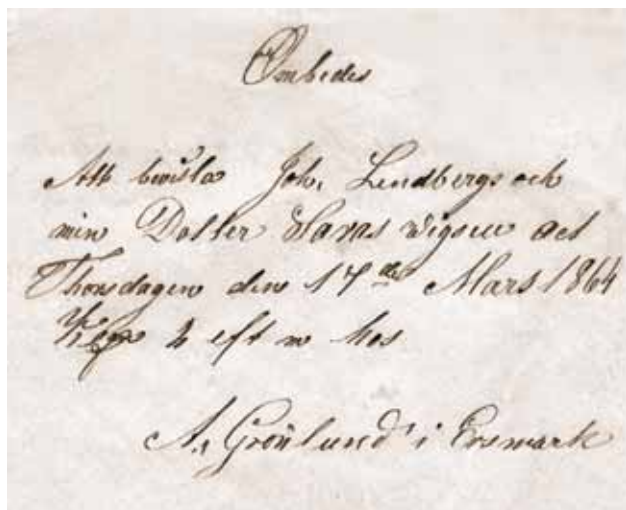 Ombedes
Att bevista Joh. Lindbergs och
min Dotter Saras wigsel
Thorsdagen den 17de Mars 1864
2 eft m hos
A. Grönlund i Ersmark